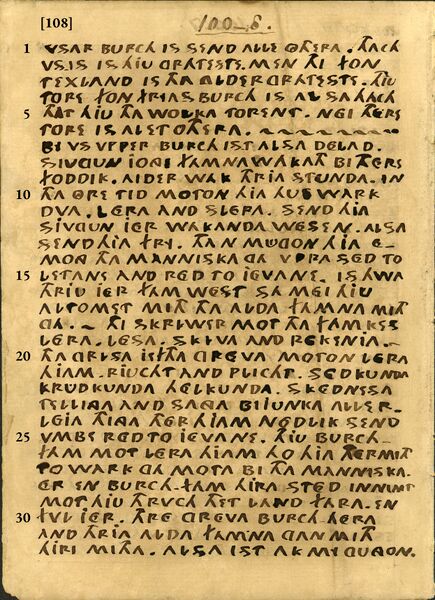 [108] 100-8.
1 VSAR BURCH IS SEND ALLE OTHERA. THACH
VS.IS IS HIU GRATESTE. MEN THI FON
TEXLAND IS THA ALDERGRATESTE. THIU
TORE FON FRIASBURCH IS ALSA HACH
5 THAT HIU THA WOLKA TORENT. NEI THERE
TORE IS AL ET OTHERA.
BI VS VPPER BURCH IST ALSA DELAD.
SIVGUN IOGI FAMNA WAKATH BI THERE
FODDIK. AIDER WAK THRIA STUNDA. IN
10 THA ORE TID MOTON HIA HUSWARK
DVA. LERA AND SLEPA. SEND HIA
SIVGUN IER WAKANDA WESEN. ALSA
SEND HIA FRI. THAN MUGON HIA E-
MONG THA MANNISKA GA VPRA SED TO
15 LETANE AND RED TO IEVANE. IS HWA
THRIU IER FAM WEST SA MEI HIU
ALTOMET MITH THA ALDA FAMNA MITH
GA. THI SKRIWER MOT THA FAMKES
LERA. LESA. SKRIVA AND REKENIA.
20 THA GRISA IEFTHA GREVA MOTON LERA
HIAM. RIUCHT AND PLICHT. SEDKUNDA
KRUDKUNDA HELKUNDA. SKEDNESSA
TELLINGA AND SANGA BIIUNKA ALLER-
LEIA THINGA THER HIAM NEDLIK SEND
25 VMBE RED TO IEVANE. THIU BURCH-
FAM MOT LERA HIAM HO HIA THERMITH
TO WARK GA MOTA BI THA MANNISKA.
ER EN BURCH-FAM HIRA STED INNIMT
MOT HIU THRUCH THET LAND FARA. EN
30 FUL IER. THRE GREVA BURCH-HERA
AND THRIA ALDA FAMNA GAN MITH
HIRI MITHA. ALSA IST AK MI GVGON.